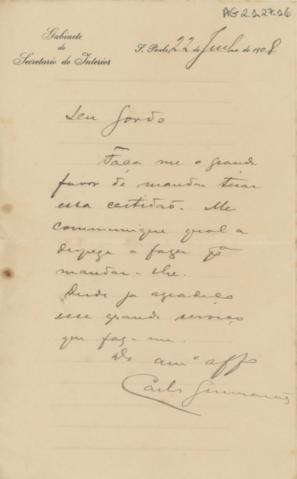 AG 2.2.27.26
Gabinete
do
Secretario do Interior
S. Paulo, 22 de Junho de 1908
Seu Gordo
Faça me o grande
favor de mandar tirar
essa certidão. Me
communique qual a
despeza a fazer pª
mandar-lhe.
Desde já agradeço
esse grande serviço
que faz-me.
Do amº affº
Carlos Guimarães